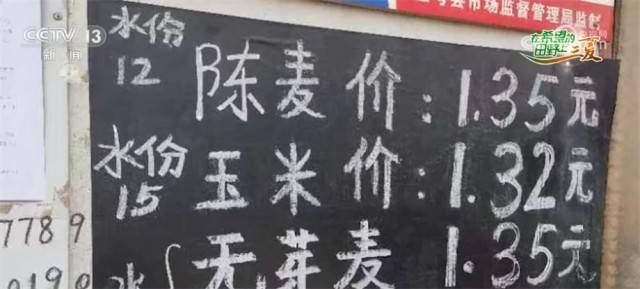 CCTV 13
新闻
市场监督管理局监
在希望的
田野上
三夏
水份
12
陈麦价:1.35元
水份
15
玉米价:1.32元
无芽麦 1.35元
7789